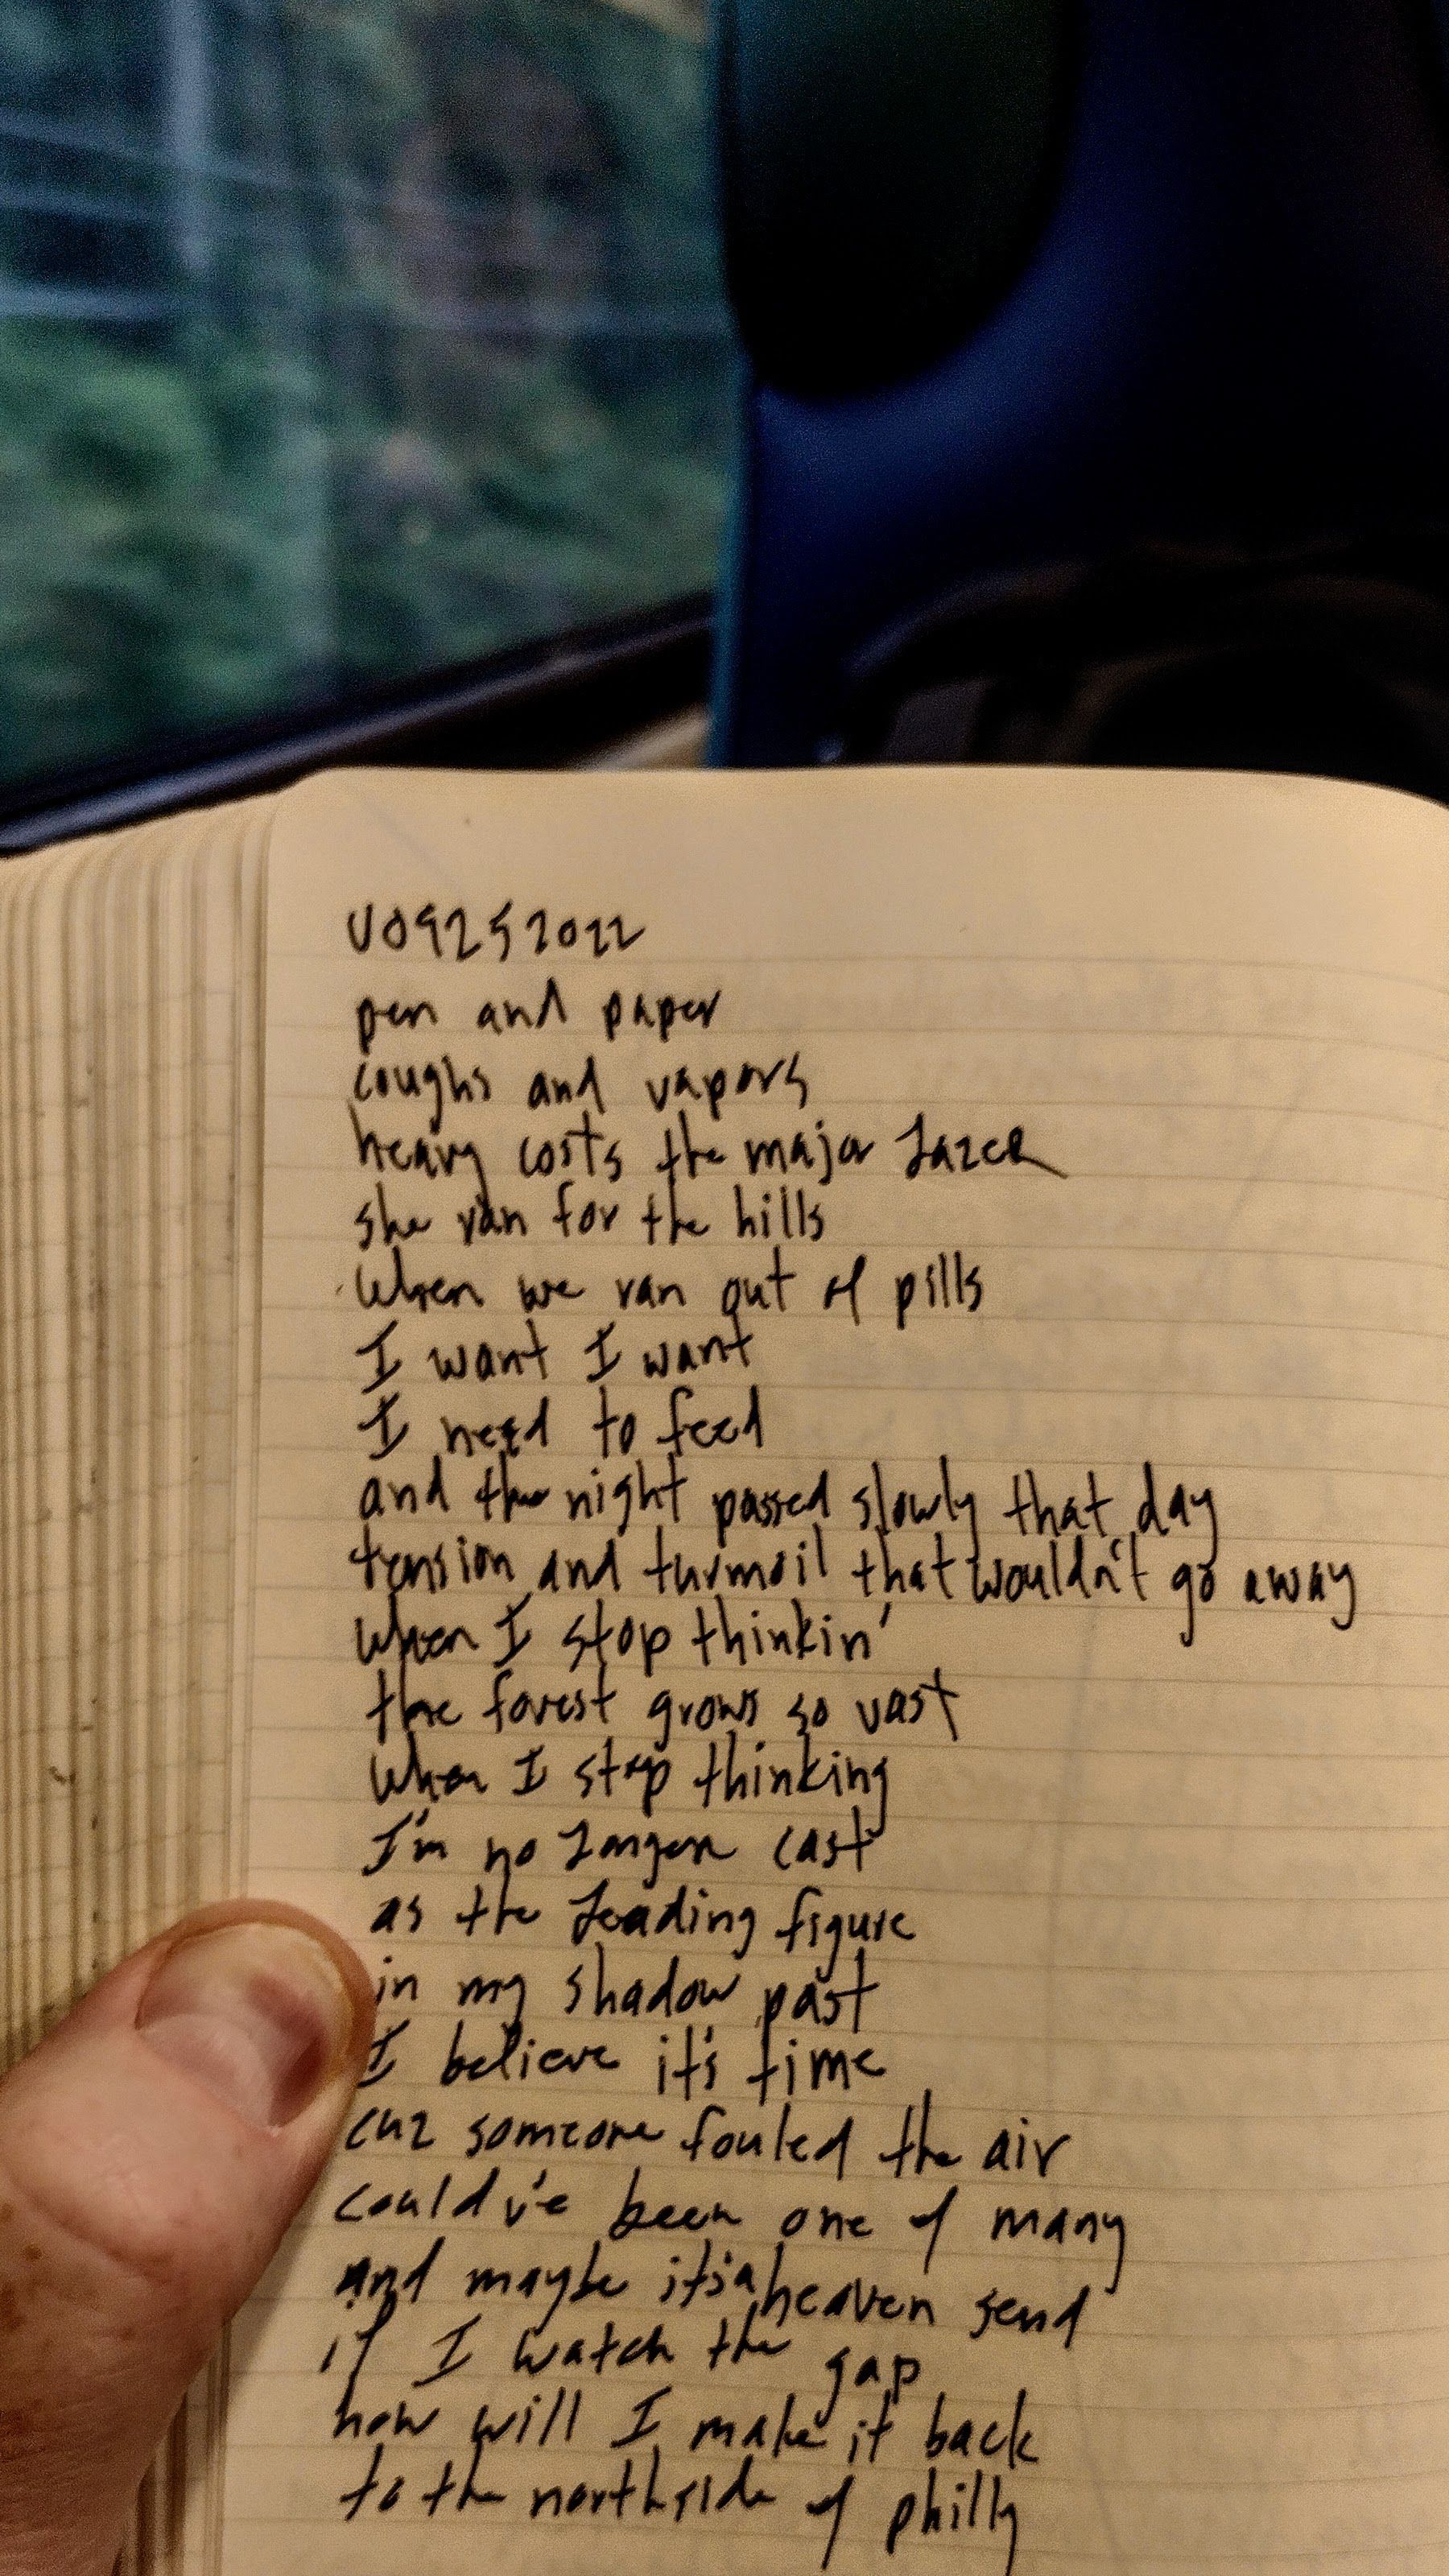 U09252022
pen and paper
coughs and vapors
heavy costs the major Lazer
she ran for the hills
when we ran out of pills
I want I want
I need to feed
and the night passed slowly that day
tension and turmoil that wouldn't go away
when I stop thinkin'
the forest grows so vast
when I stop thinking
I'm no Longer cast
as the Leading figure
in my shadow past
I believe it's time
cuz someone fouled the air
could've been one of many
and maybe it's a heaven send
if I watch the gap
how will I make it back
to the northside of philly